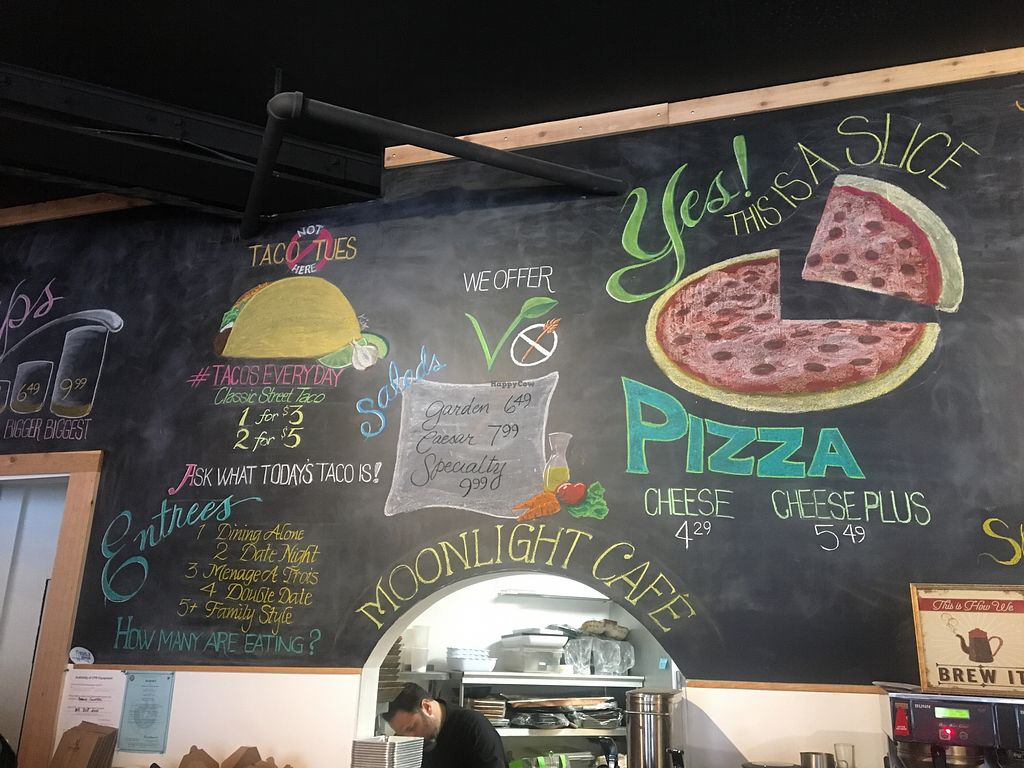 Yes!
THIS IS A SLICE
NOT
TACO TUES
HERE
WE OFFER
ps
6.49
9.99
BIGGER BIGGEST
#TACOS EVERY DAY
Classic Street Taco
1 for $3
2 for $5
ASK WHAT TODAY'S TACO IS!
Salads
HappyCow
Garden 6.49
Caesar 7.99
Specialty
9.99
PIZZA
CHEESE
4.29
CHEESE PLUS
5.49
Entrees
1 Dining Alone
2 Date Night
3 Menage A Trois
4 Double Date
5+ Family Style
HOW MANY ARE EATING?
MOONLIGHT CAFÉ
S
This is How We
BREW IT
BUNN